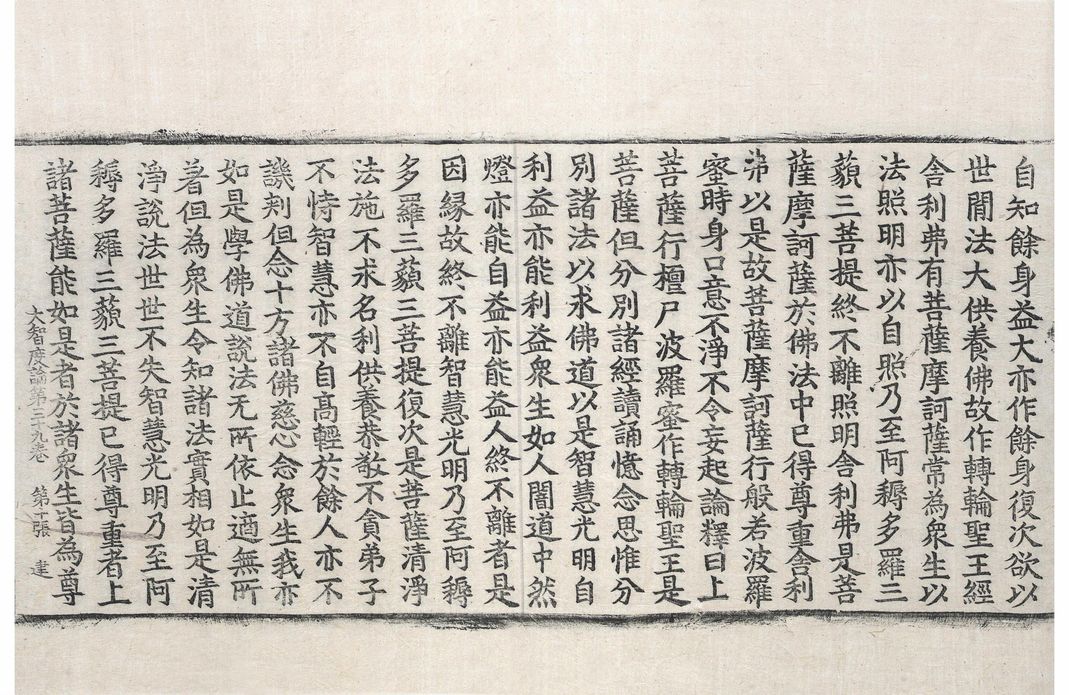 自知餘身益大亦作餘身復次欲以
世間法大供養佛故作轉輪聖王經
舍利弗有菩薩摩訶薩常為衆生以
法照明亦以自照乃至阿耨多羅三
藐三菩提終不離照明舍利弗是菩
薩摩訶薩於佛法中已得尊重舍利
弗以是故菩薩摩訶薩行般若波羅
蜜時身口意不淨不令妄起論釋曰上
菩薩行檀尸波羅蜜作轉輪聖王是
菩薩但分別諸經讀誦憶念思惟分
別諸法以求佛道以是智慧光明自
利益亦能利益衆生如人闇道中然
燈亦能自益亦能益人終不離者是
因縁故終不離智慧光明乃至阿耨
多羅三藐三菩提復次是菩薩清淨
法施不求名利供養恭敬不貪弟子
不恃智慧亦不自高輕於餘人亦不
譏刾但念十方諸佛慈心念衆生我亦
如是學佛道說法无所依止適無所
著但為衆生令知諸法實相如是清
淨說法世世不失智慧光明乃至阿
耨多羅三藐三菩提已得尊重者上
諸菩薩能如是者於諸衆生皆為尊
大智度論第三十九卷 第十張 達